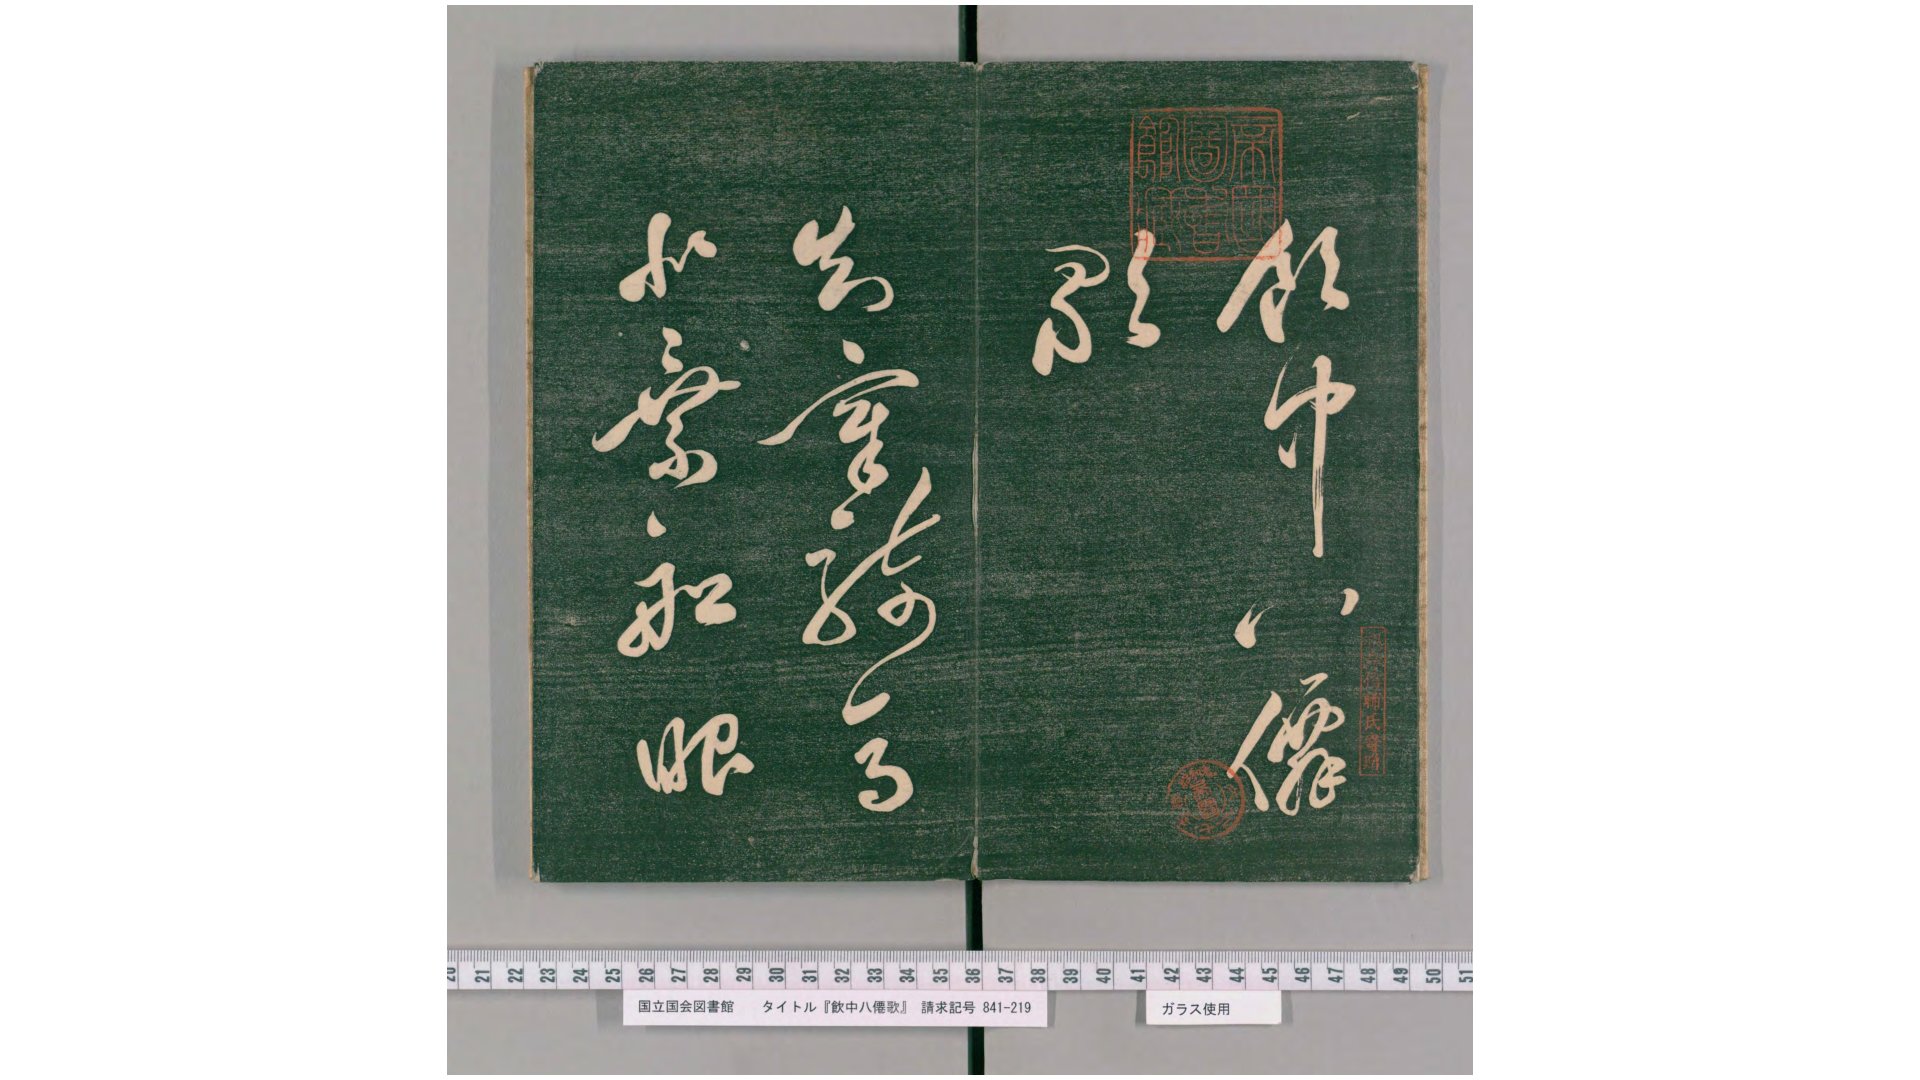 帝國
圖書
館藏
飲中八僊
歌
知章騎馬
似乗船眼
20 21 22 23 24 25 26 27 28 29 30 31 32 33 34 35 36 37 38 39 40 41 42 43 44 45 46 47 48 49 50 51
国立国会図書館 タイトル『飲中八僊歌』 請求記号 841-219
ガラス使用